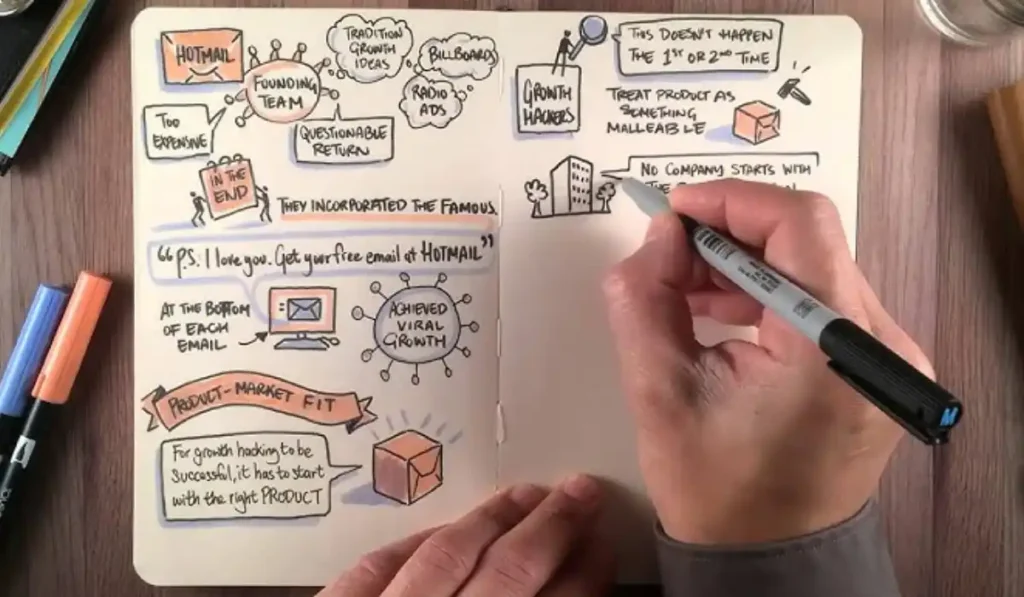 HOTMAIL
FOUNDING
TEAM
TRADITION
GROWTH
IDEAS
BILLBOARDS
RADIO
ADS
TOO
EXPENSIVE
QUESTIONABLE
RETURN
IN THE
END
THEY INCORPORATED THE FAMOUS.
"P.S. I love you. Get your free email at HOTMAIL"
AT THE BOTTOM
OF EACH
EMAIL
ACHIEVED
VIRAL
GROWTH
PRODUCT-MARKET FIT
For growth hacking to be
successful, it has to start
with the right PRODUCT
GROWTH
HACKERS
THIS DOESN'T HAPPEN
THE 1ST OR 2ND TIME
TREAT PRODUCT AS
SOMETHING
MALLEABLE
NO COMPANY STARTS WITH